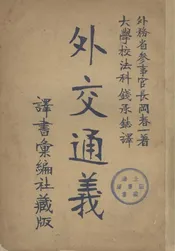 外務省參事官長岡春一著
大學校法科錢承鋕譯
外交通義
譯書彙編社藏版